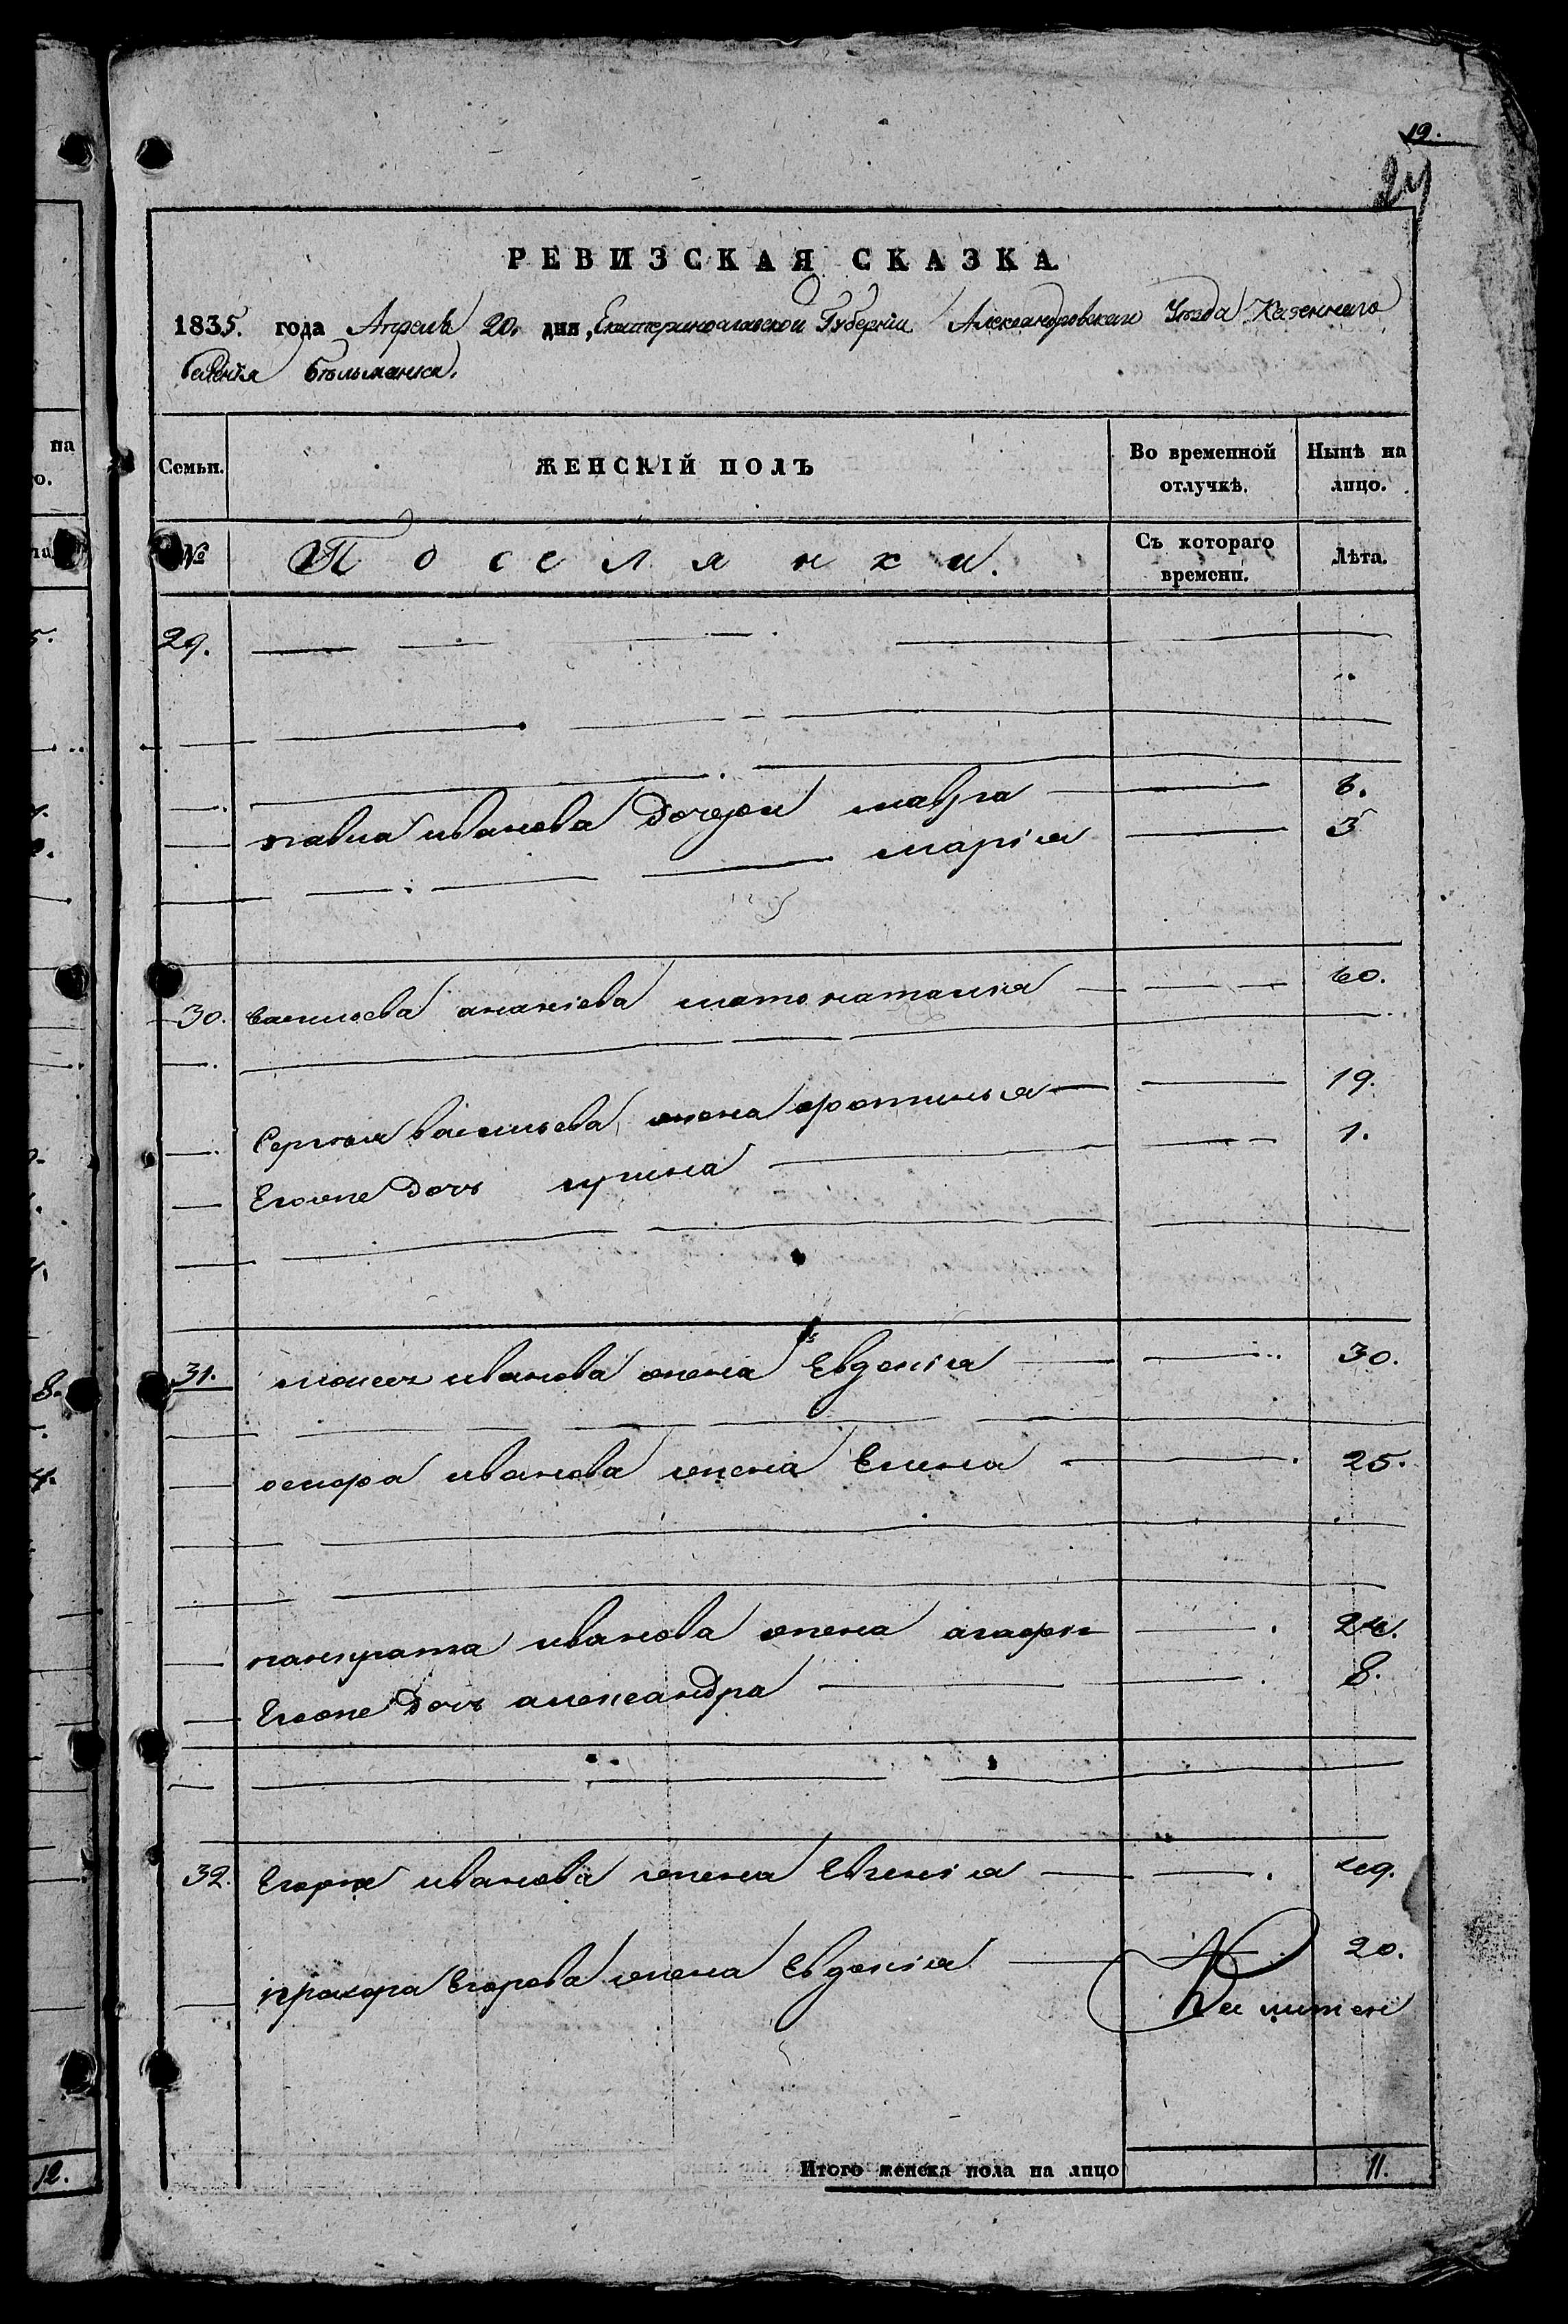 19.
24
РЕВИЗСКАЯ СКАЗКА
1835. года Апреля 20. дня, Екатеринославской Губернiи Александровскаго Уезда Казеннаго
Селенiя Бѣльманка.
Семьи. ЖЕНСКІЙ ПОЛЪ Во временной отлучкѣ. Нынѣ на лицо.
№ Поселянки. Съ котораго времени. Лѣта.
29.
павла иванова дочери мавра 6.
марiя 5
30. васильева ананiева мать наталiя 60.
Сергея васильева жена фотинья 19.
Егоже дочь 1.
31. моисея иванова жена Евдокiя 30.
осифа иванова жена Елена 25.
панкрата иванова жена агафiя 24.
Егоже дочь александра 8.
32. Егора иванова жена Евгенiя 49.
прохора Егорова жена Евдокiя 20.
Итого женска пола на лицо 11.
на
о.
8.
4.
12.